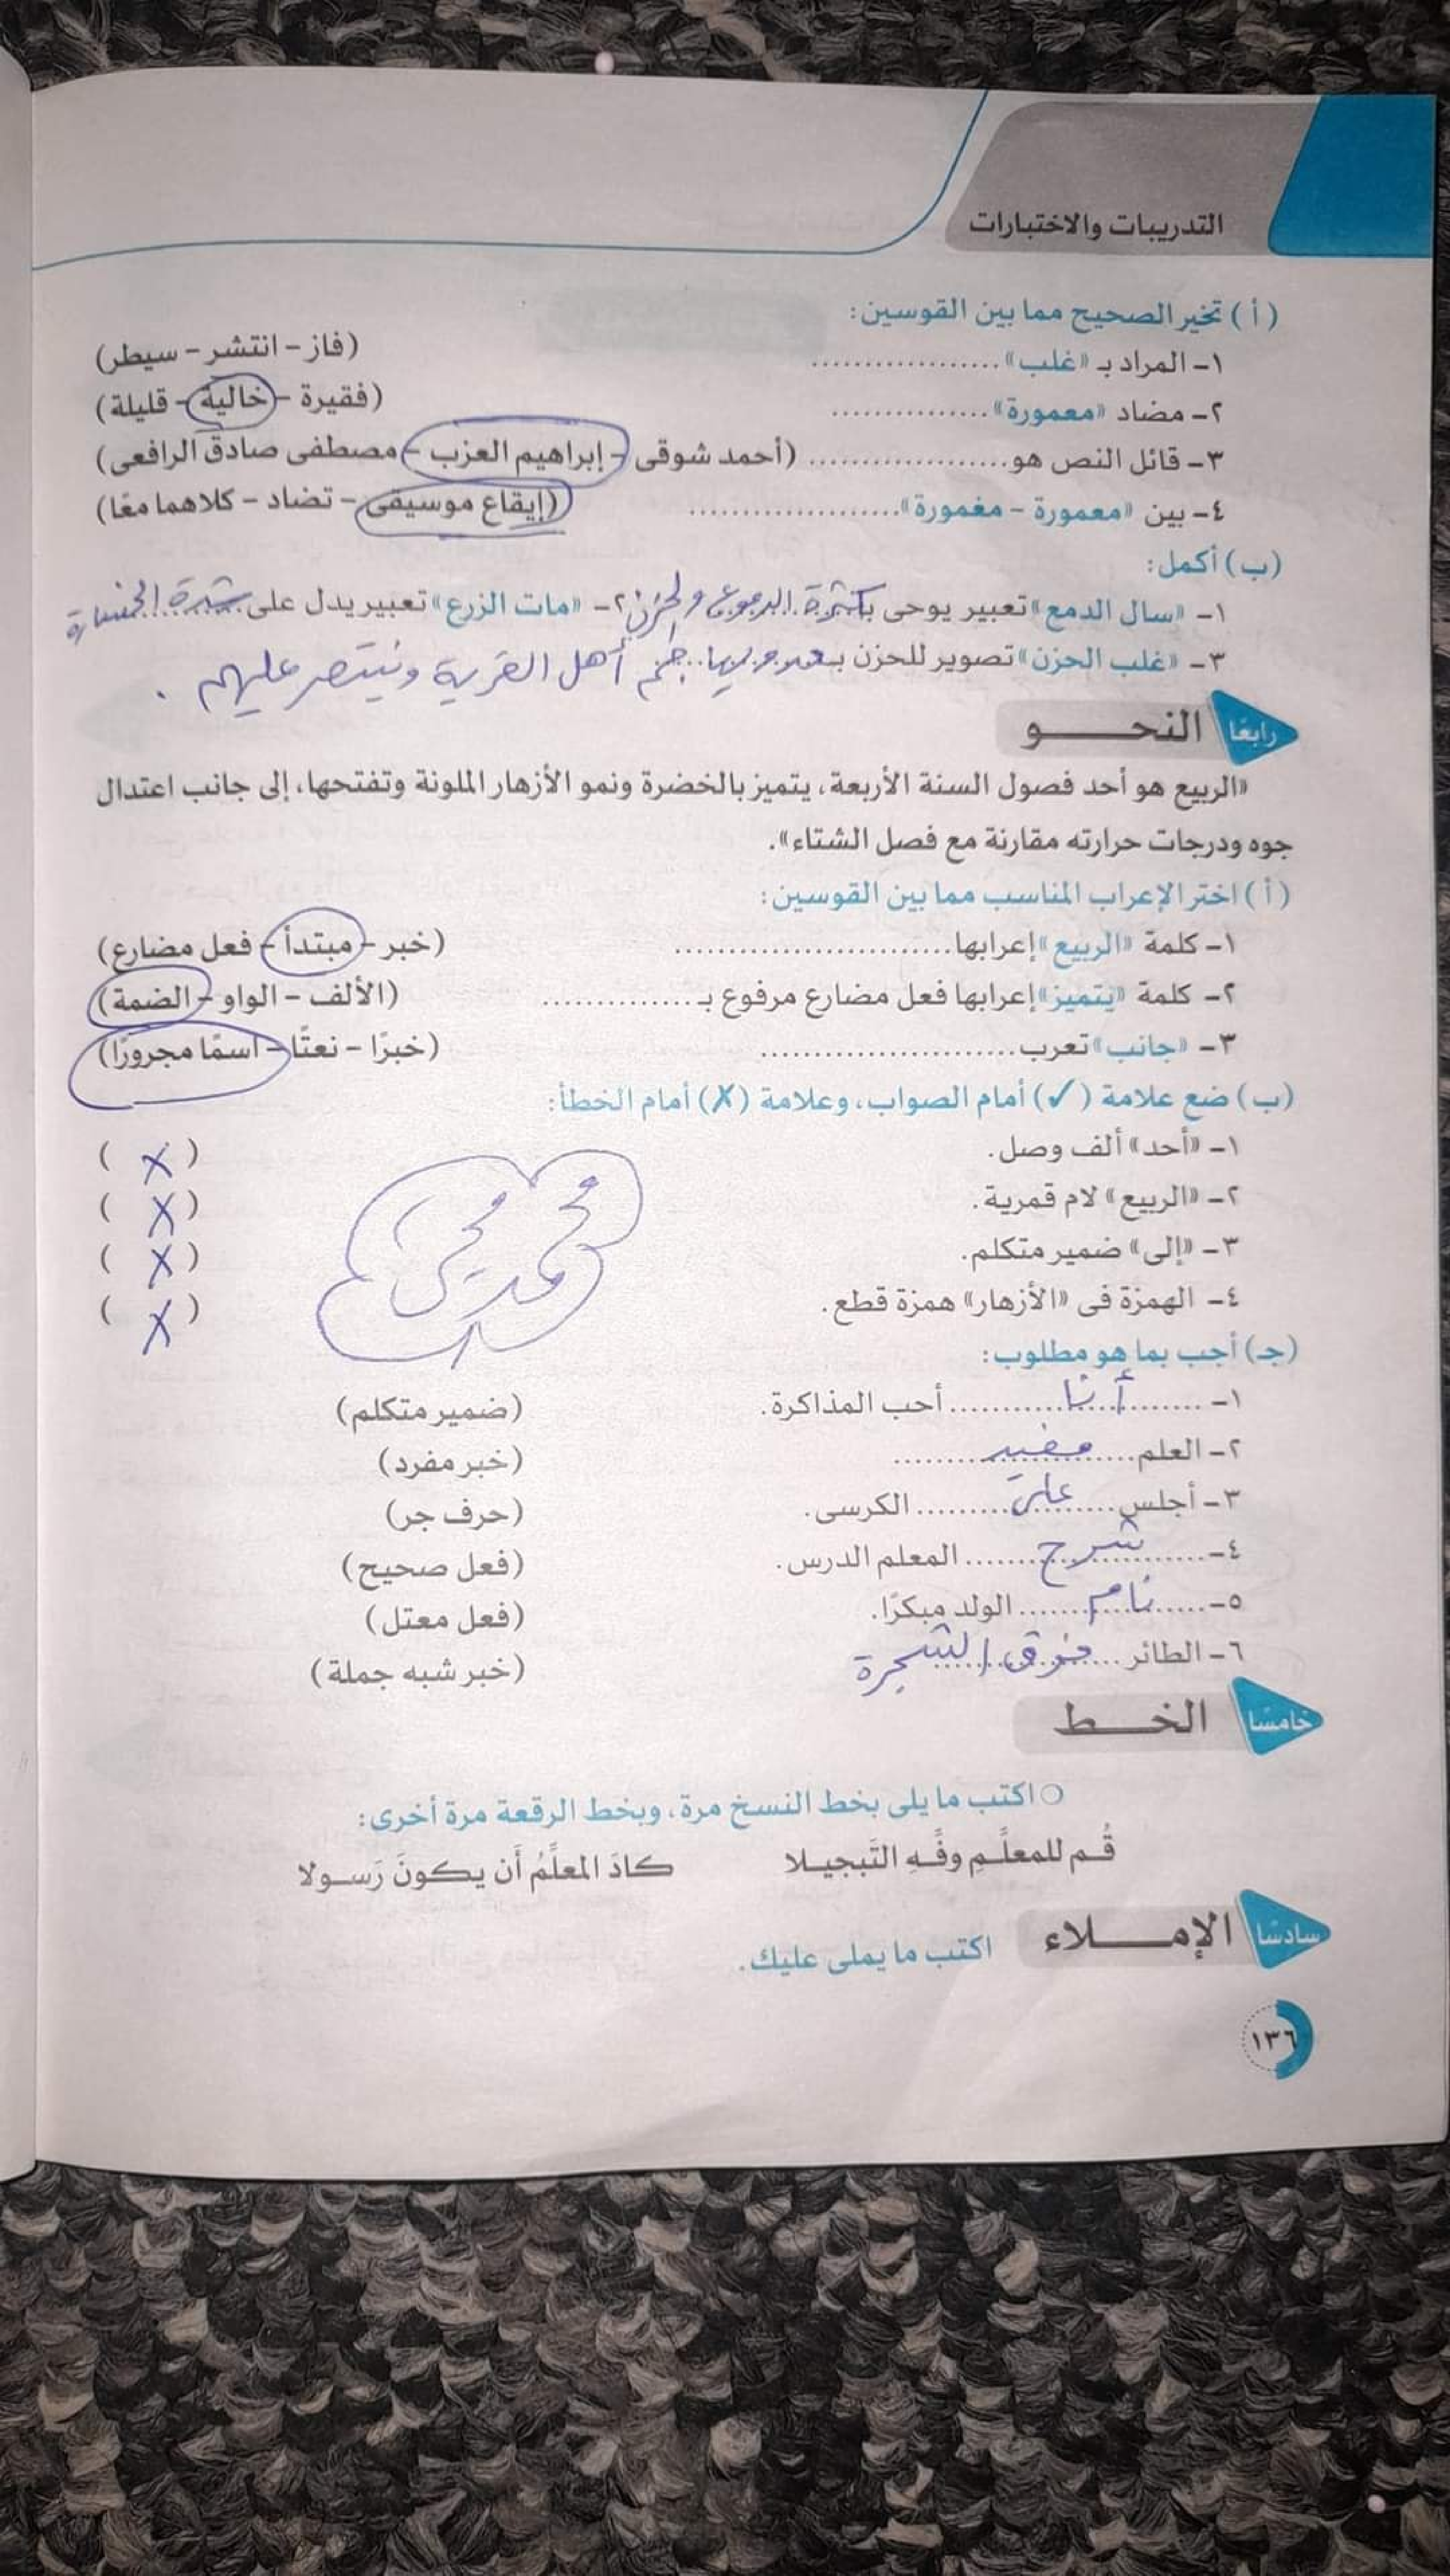 التدريبات والاختبارات
(أ) تخير الصحيح مما بين القوسين:
١- المراد بـ «غلب» .................. (فاز - انتشر - سيطر)
٢- مضاد «معمورة» ............... (فقيرة - خالية - قليلة)
٣- قائل النص هو ................... (أحمد شوقى - إبراهيم العزب - مصطفى صادق الرافعى)
٤- بين «معمورة - مغمورة» .................... (إيقاع موسيقى - تضاد - كلاهما معًا)
(ب) أكمل:
١- «سال الدمع» تعبير يوحى بكثرة الدموع والحزن ٢- «مات الزرع» تعبير يدل على شدة الخسارة
٣- «غلب الحزن» تصوير للحزن بـ أهل القرية وينتصر عليهم .
رابعًا النحـــو
«الربيع هو أحد فصول السنة الأربعة، يتميز بالخضرة ونمو الأزهار الملونة وتفتحها، إلى جانب اعتدال
جوه ودرجات حرارته مقارنة مع فصل الشتاء».
(أ) اختر الإعراب المناسب مما بين القوسين:
١- كلمة «الربيع» إعرابها .......................... (خبر - مبتدأ - فعل مضارع)
٢- كلمة «يتميز» إعرابها فعل مضارع مرفوع بـ .............. (الألف - الواو - الضمة)
٣- «جانب» تعرب ........................ (خبرًا - نعتًا - اسمًا مجرورًا)
(ب) ضع علامة (✓) أمام الصواب، وعلامة (✗) أمام الخطأ:
١- «أحد» ألف وصل. ( X )
٢- «الربيع» لام قمرية. ( X )
٣- «إلى» ضمير متكلم. ( X )
٤- الهمزة فى «الأزهار» همزة قطع. ( X )
(جـ) أجب بما هو مطلوب:
١- أنا أحب المذاكرة. (ضمير متكلم)
٢- العلم مفيد (خبر مفرد)
٣- أجلس على الكرسى. (حرف جر)
٤- شرح المعلم الدرس. (فعل صحيح)
٥- نام الولد مبكرًا. (فعل معتل)
٦- الطائر فوق الشجرة (خبر شبه جملة)
خامسًا الخـــط
اكتب ما يلى بخط النسخ مرة، وبخط الرقعة مرة أخرى:
قُـم للمعلِّـمِ وفِّـهِ التَبجيـلا كادَ المعلِّمُ أَن يكونَ رَسـولا
سادسًا الإمـــلاء اكتب ما يملى عليك.
١٣٦